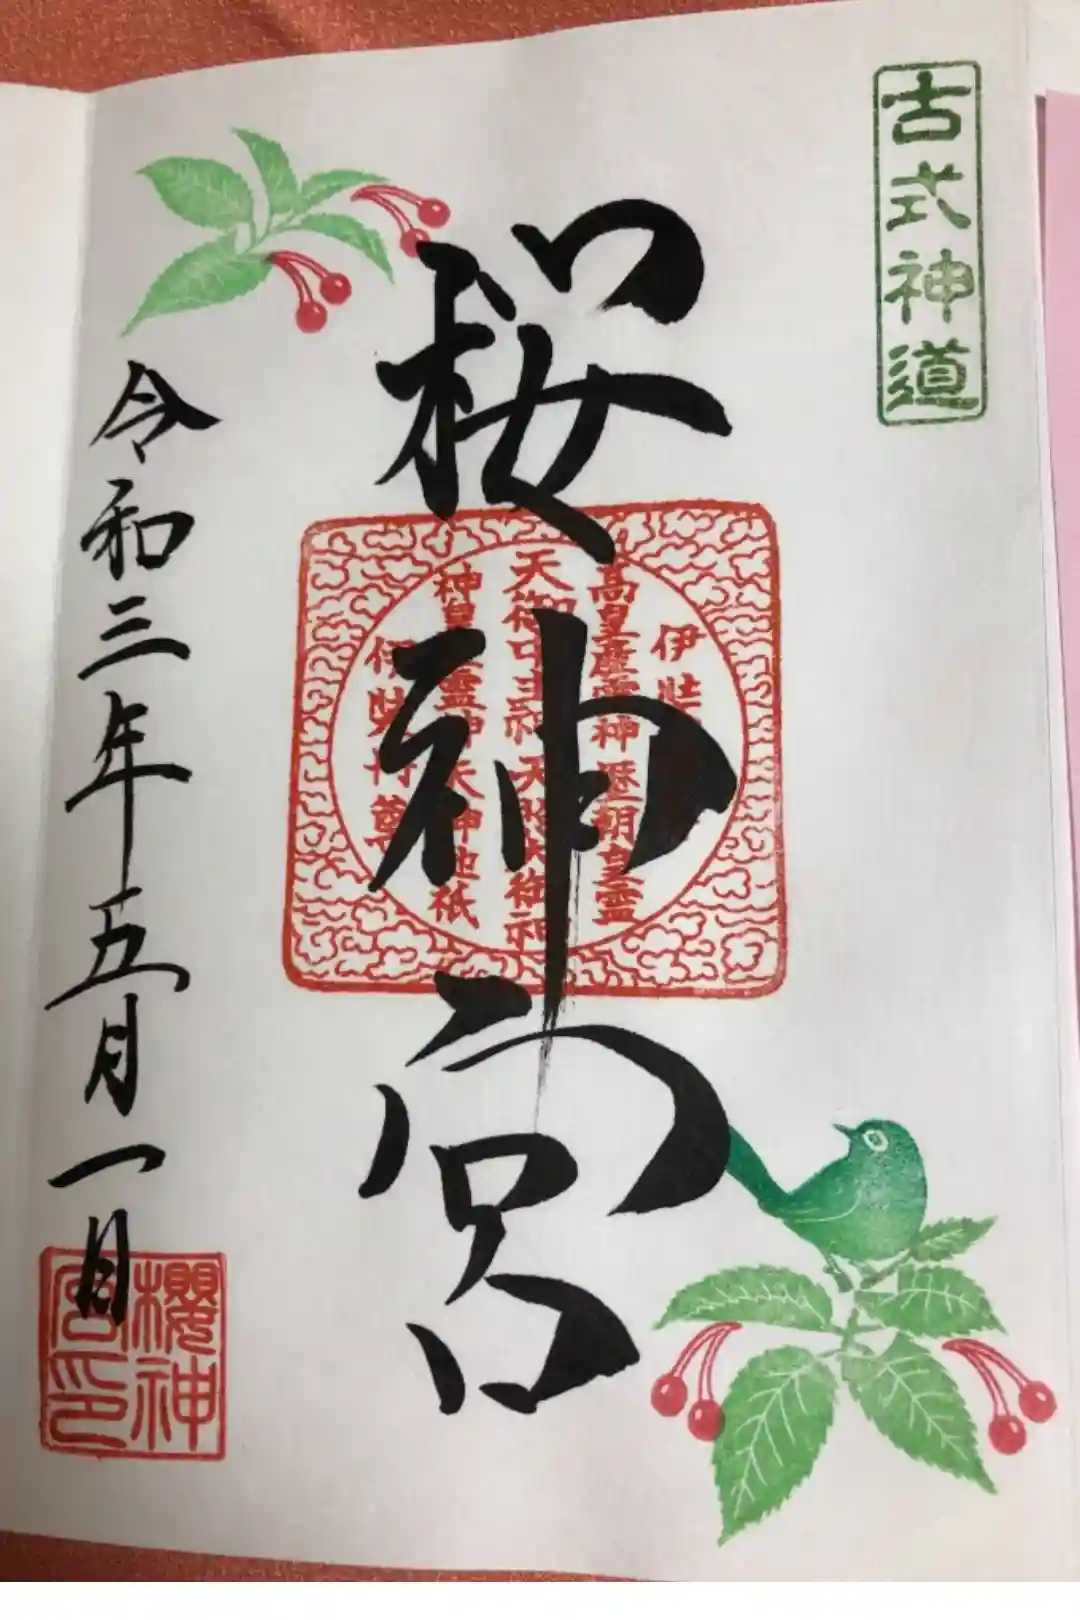 古式神道
桜神宮
伊
高皇産霊神 歴朝皇霊
天御中主神 天照大御神
神皇産霊神 天神地祇
伊弉冉尊
令和三年五月一日
櫻神
宮印